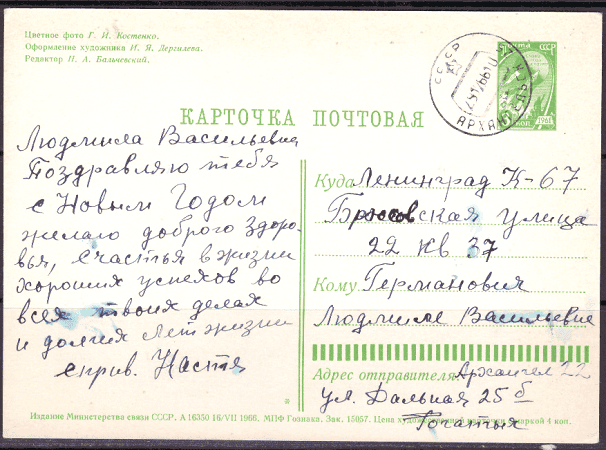 Цветное фото Г. И. Костенко.
Оформление художника И. Я. Дергилева.
Редактор Н. А. Бальчевский.
ПОЧТА СССР
1961
СССР
КАРТОЧКА ПОЧТОВАЯ
Людмила Васильевна
Поздравляю тебя
с Новым Годом
желаю доброго здоро-
вья, счастья в жизни
хороших успехов во
всех твоих делах
и долгих лет жизни
с прив. Настя
Куда Ленинград К-67
ская улица
22 кв 37
Кому Германович
Людмиле Васильевне
Адрес отправителя: Архангел 22
ул. Дальная 25 б
Издание Министерства связи СССР. А 16350 16/VII 1966. МПФ Гознака. Зак. 15057. Цена художественной с маркой 4 коп.